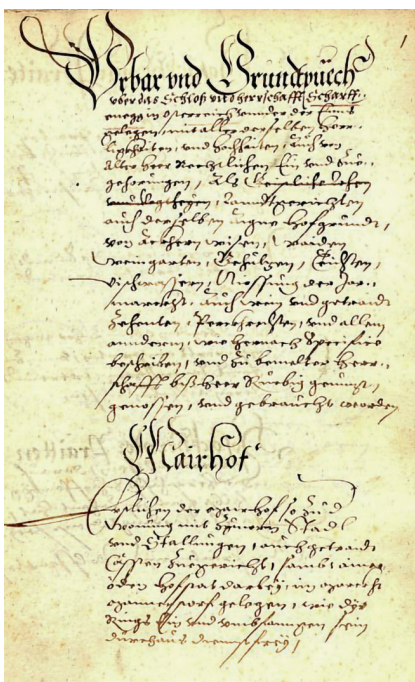 1
Urbar vnd Grundtpuech
vber das Schloß vnd herrschafft Scharff¬
enegg in Osterreich vnnder der Enns
gelegen, mit aller derselben Herr¬
ligkhaiten, vnd Hochhaiten, Auch von
Alter heer Rechtlichen Ein vnd Zue¬
gehorungen, Als
vnnd Vogtheyen, Lanndtgerichten
auch derselben aigne Hofgrundt,
von äckhern wisen, Waiden
Weingarten, Gehültzen, Teichten,
Vischwassern, Niessung der Jar¬
marckht, Auch wein vnd getraidt
Zehenten, Perckhrechten, vnd allem
annderm, wie hernach Specificie
beschriben, vnd zu bemelter Herr¬
schafft biß heer Ruebig genutzt,
genossen, vnd gebraucht worden
Mairhof
Erstlichen der Mairhof so zu d
Wonung mit Zimern Stadl
vnd Stallungen, auch getraidt
Cässten Zuegericht, sambt ainer
öden Hofstat darbey, im Marckht
Mannerstorf gelegen, wie dye
Rings Ein vnd vmbfanngen sein
durchaus diennstfrey,